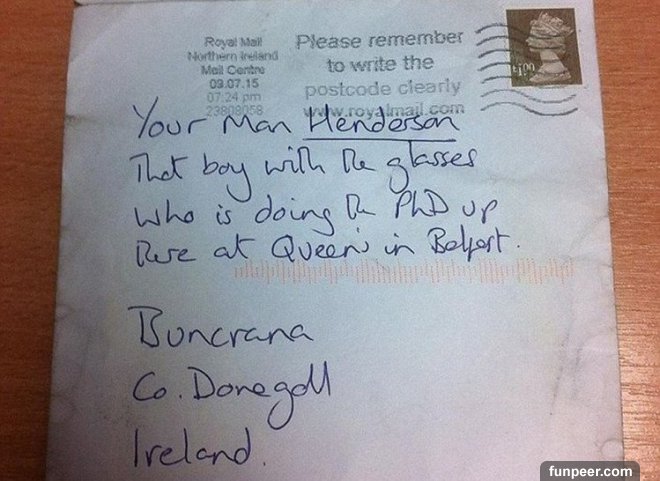 Royal Mail
Northern Ireland
Mail Centre
09.07.15
07:24 pm
23808058
Please remember
to write the
postcode clearly
www.royalmail.com
£1.00
Your Man Henderson
That boy with the glasses
who is doing the PhD up
there at Queen's in Belfast.
Buncrana
Co. Donegall
Ireland.
funpeer.com